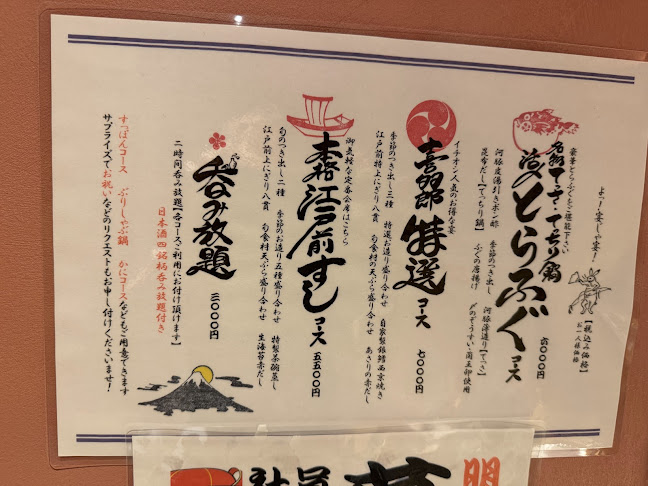 よっ!宴じゃ宴!
【税込み価格】
お一人様価格
豪華とらふぐをご堪能下さい
名物てっさ・てっちり鍋
活〆とらふぐコース
八〇〇〇円
河豚皮湯引きポン酢 季節のつき出し 河豚薄造り【てっさ】
昆布だし【てっちり鍋】 ふぐの唐揚げ 〆のぞうすい・蘭王卵使用
イチオシ人気のお得な宴
喜多郎特選コース
七〇〇〇円
季節のつき出し三種 特選お造り盛り合わせ 自家製銀鱈西京焼き
江戸前特上にぎり八貫 旬食村の天ぷら盛り合わせ あさりの赤だし
御気軽な定番会席はこちら
本格江戸前すしコース
五五〇〇円
旬のつき出し二種 季節のお造り五種盛り合わせ 特製茶碗蒸し
江戸前上にぎり八貫 旬食村天ぷら盛り合わせ 生海苔赤だし
呑み放題
三〇〇〇円
二時間呑み放題【各コースご利用にお付け頂けます】
日本酒四銘柄呑み放題付き
すっぽんコース ぶりしゃぶ鍋 かにコースなどもご用意できます
サプライズでお祝いなどのリクエストもお申し付けくださいませ!